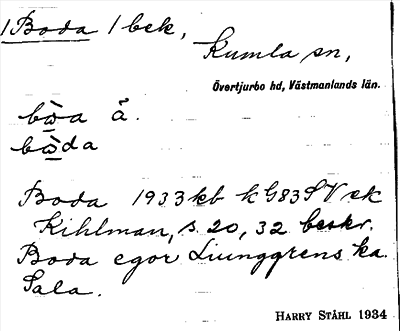 /Boda / bek,
Kumla sn,
Övertjurbo hd, Västmanlands län.
bὼa ǟ.
bὼda
Boda 1933 kb k G83SV ek
Kihlman, s. 20, 32 beskr.
Boda egor Ljunggrens ka.
Sala.
HARRY STÅHL 1934